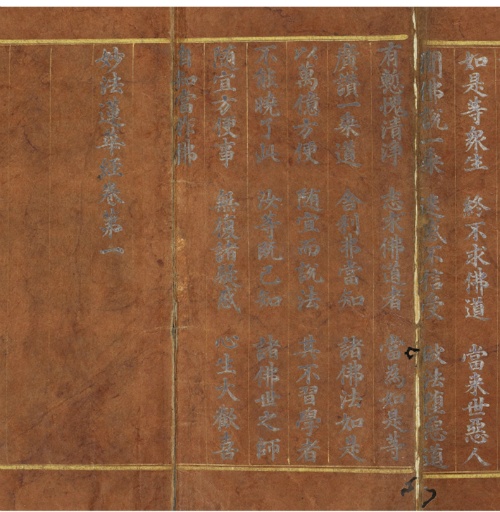 如是等衆生 終不求佛道 當来世惡人
聞佛說一乗 迷惑不信受 破法墮惡道
有慙愧清淨 志求佛道者 當為如是等
廣讃一乗道 舎利弗當知 諸佛法如是
以萬億方便 随宜而說法 其不習學者
不能曉了此 汝等既已知 諸佛世之師
随宜方便事 無復諸疑惑 心生大歡喜
自知當作佛
妙法蓮華経卷第一